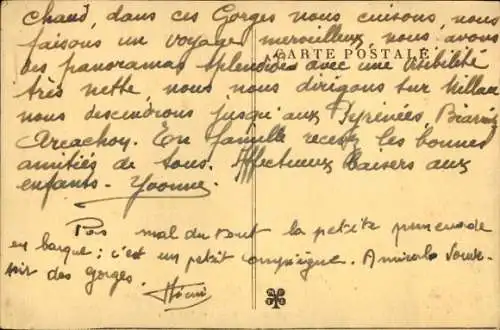 chaud, dans ces Gorges nous cuisons, nous
faisons un voyage merveilleux, nous avons
CARTE POSTALE
des panoramas splendides avec une visibilité
très nette, nous nous dirigons sur Millau
nous descendrons jusqu'aux Pyrénées, Biarritz
Arcachon. En famille recevez les bonnes
amitiés de tous. Affectueux Baisers aux
enfants - Yvonne.
Pas mal du tout la petite promenade
en barque ; c'est un petit . Amicale Souve-
nir des gorges.